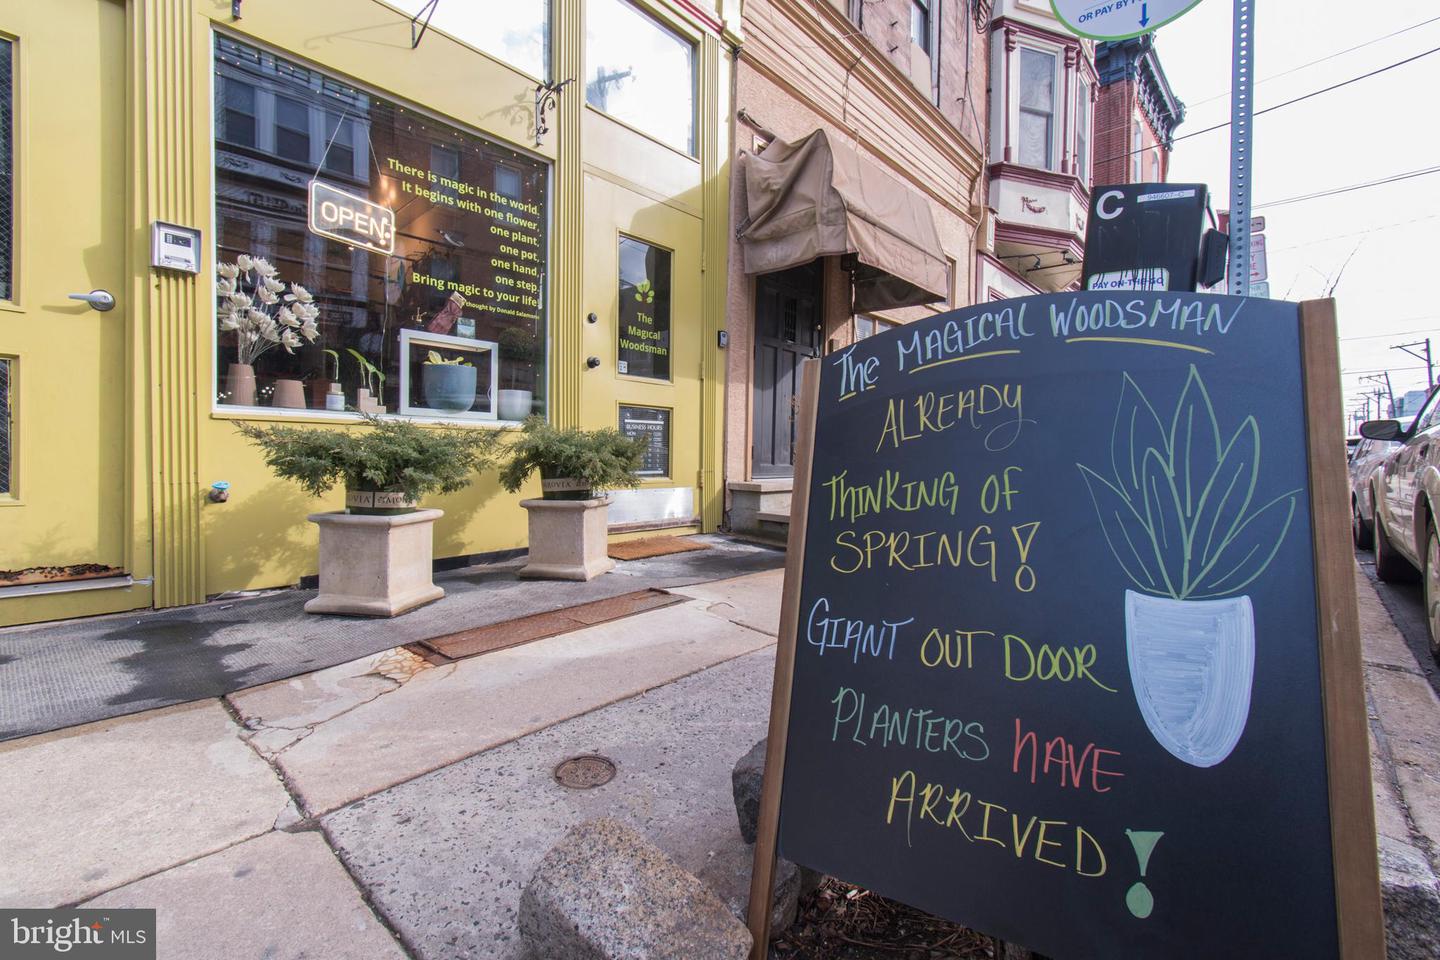 OR PAY BY
There is magic in the world.
It begins with one flower,
one plant,
one pot,
one hand,
one step.
Bring magic to your life!
thought by Donald Salamone
OPEN
The
Magical
Woodsman
BUSINESS HOURS
C
946607-C
PAY ON-THE-GO
The MAGICAL WOODSMAN
ALREADY
THINKING OF
SPRING!
GIANT OUT DOOR
PLANTERS HAVE
ARRIVED!
bright™ MLS